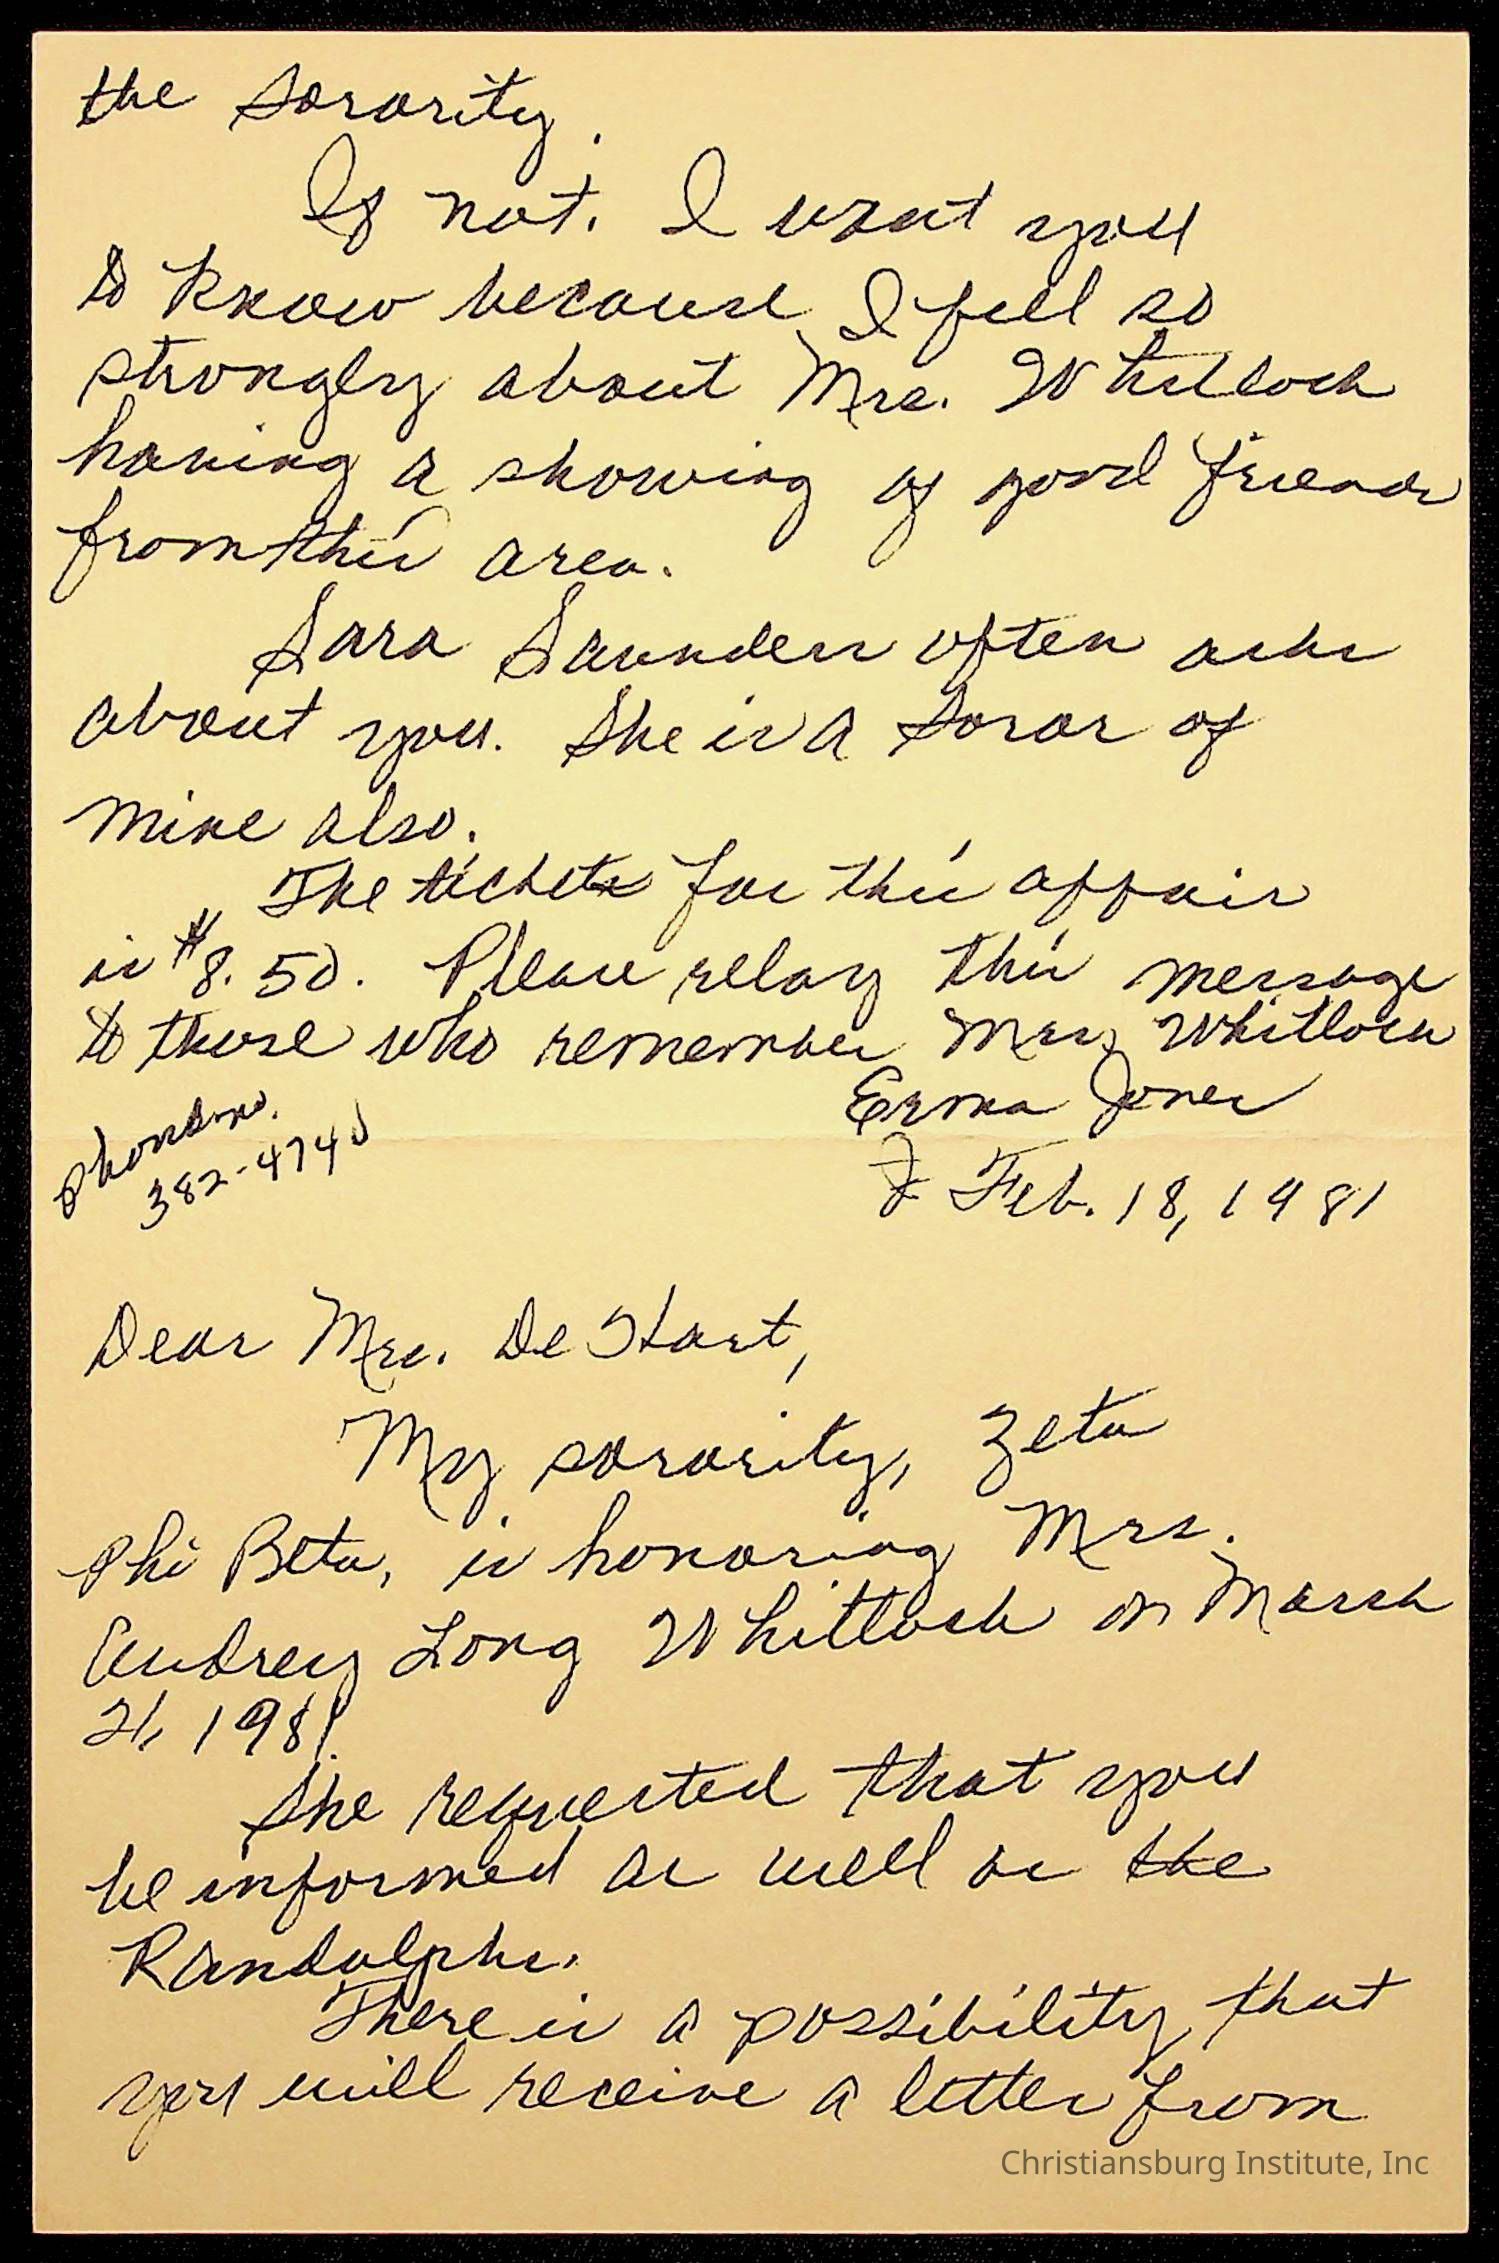 the Sorority.
If not, I want you
to know because I feel so
strongly about Mrs. Whitlock
having a showing of good friends
from this area.
Sara Saunders often asks
about you. She is a Soror of
mine also.
The tickets for this affair
is $8.50. Please relay this message
to those who remember Mrs. Whitlock
Erma Jones
phone no.
382-4740
Feb. 18, 1981
Dear Mrs. De Hart,
My sorority, Zeta
Phi Beta, is honoring Mrs.
Audrey Long Whitlock on March
21, 1981.
She requested that you
be informed as well as the
Randolphs.
There is a possibility that
you will receive a letter from
Christiansburg Institute, Inc